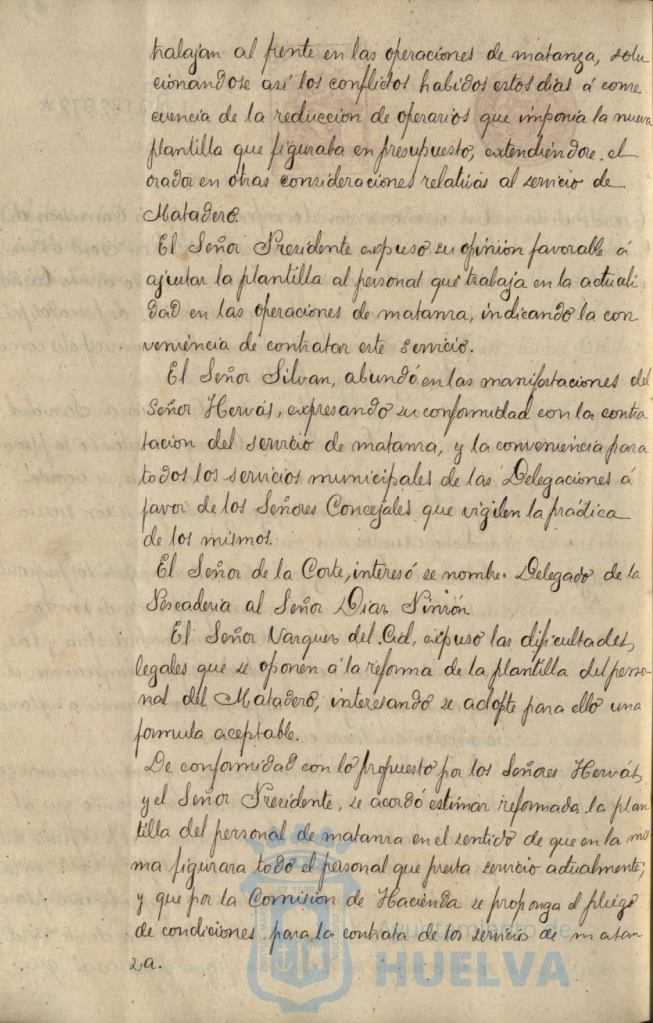 trabajan al frente en las operaciones de matanza, solu
cionandose así los conflictos habidos estos dias á conse
cuencia de la reduccion de operarios que imponia la nueva
plantilla que figuraba en presupuesto, extendiéndose el
orador en otras consideraciones relativas al servicio de
Matadero.
El Señor Presidente expuso su opinion favorable á
ajustar la plantilla al personal que trabaja en la actuali
dad en las operaciones de matanza, indicando la con
veniencia de contratar este servicio.
El Señor Silvan, abundó en las manifestaciones del
Señor Hervás, expresando su conformidad con la contra
tacion del servicio de matanza, y la conveniencia para
todos los servicios municipales de las Delegaciones á
favor de los Señores Concejales que vigilen la práctica
de los mismos.
El Señor de la Corte, interesó se nombre Delegado de la
Pescaderia al Señor Diaz Pinzón.
El Señor Vazquez del Cid, expuso las dificultades
legales que se oponen á la reforma de la plantilla del perso-
nal del Matadero, interesando se adopte para ello una
formula aceptable.
De conformidad con lo propuesto por los Señores Hervás,
y el Señor Presidente, se acordó estimar reformada la plan
tilla del personal de matanza en el sentido de que en la mis
ma figurara todo el personal que presta servicio actualmente,
y que por la Comisión de Hacienda se proponga el pliego
de condiciones para la contrata de los servicio de matan
za.
Ayuntamiento de
HUELVA